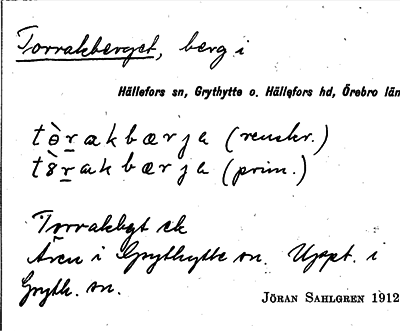 Torrakberget, berg i
Hällefors sn, Grythytte o. Hällefors hd, Örebro län
tɵ̀rakbærja (renskr.)
tȣ̀rakbærja (prim.)
Torrakbgt ek
Även i Grythytte sn. Uppt. i
Gryth. sn.
JÖRAN SAHLGREN 1912